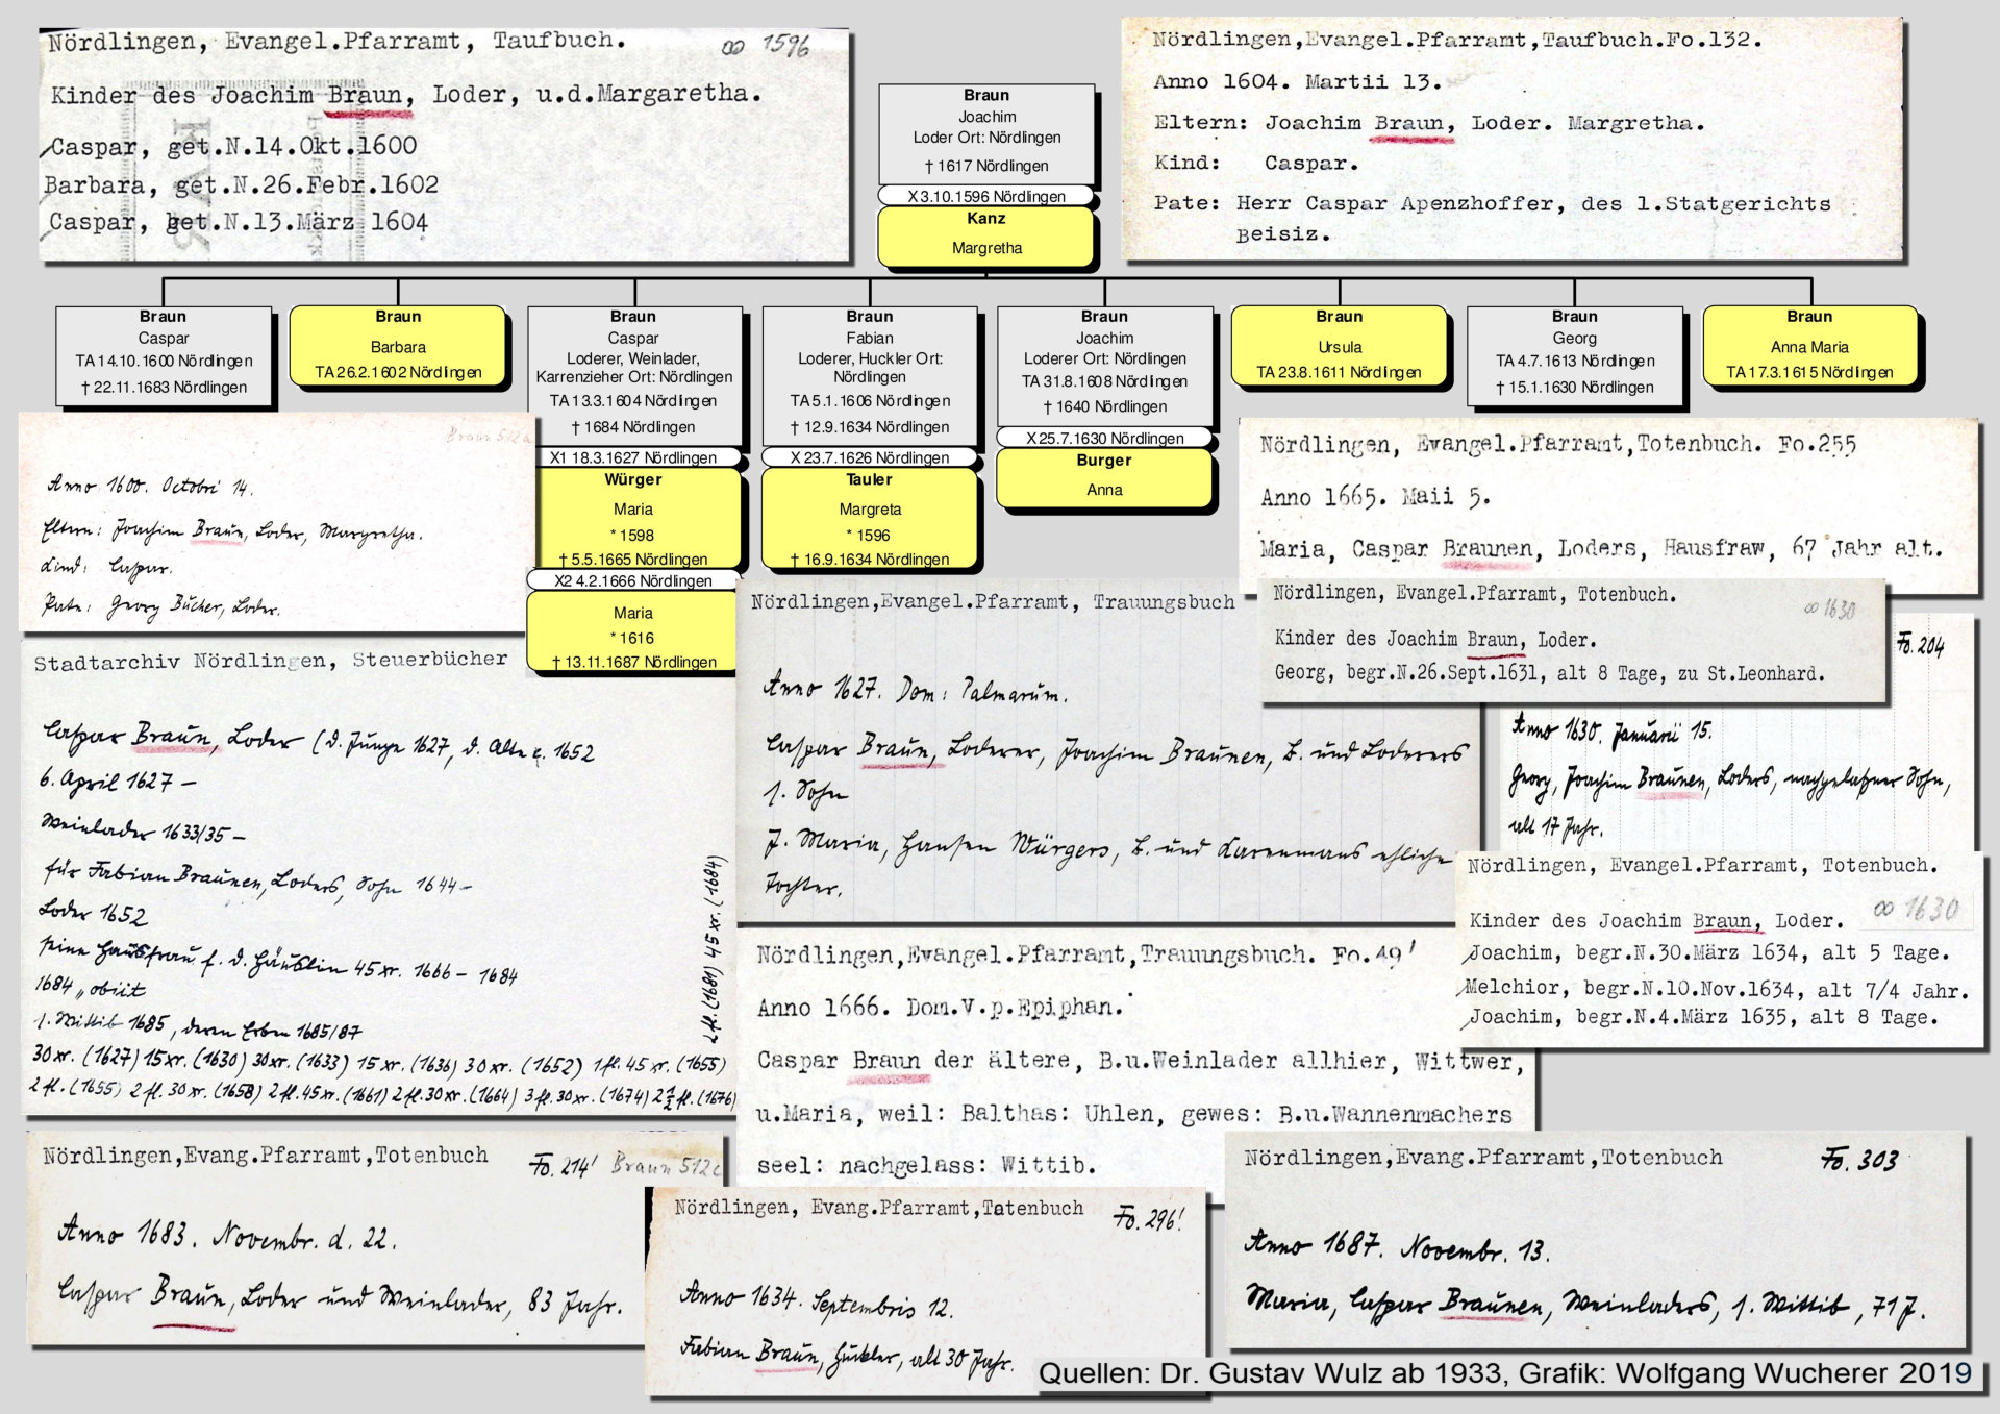 Nördlingen, Evangel.Pfarramt, Taufbuch. ∞ 1596
Kinder des Joachim Braun, Loder, u.d.Margaretha.
Caspar, get.N.14.Okt.1600
Barbara, get.N.26.Febr.1602
Caspar, get.N.13.März 1604
Braun
Joachim
Loder Ort: Nördlingen
† 1617 Nördlingen
X 3.10.1596 Nördlingen
Kanz
Margretha
Nördlingen,Evangel.Pfarramt,Taufbuch.Fo.132.
Anno 1604. Martii 13.
Eltern: Joachim Braun, Loder. Margretha.
Kind: Caspar.
Pate: Herr Caspar Apenzhoffer, des l.Statgerichts
Beisiz.
Braun
Caspar
TA 14.10.1600 Nördlingen
† 22.11.1683 Nördlingen
Braun
Barbara
TA 26.2.1602 Nördlingen
Braun
Caspar
Loderer, Weinlader,
Karrenzieher Ort: Nördlingen
TA 13.3.1604 Nördlingen
† 1684 Nördlingen
X1 18.3.1627 Nördlingen
Würger
Maria
* 1598
† 5.5.1665 Nördlingen
X2 4.2.1666 Nördlingen
Maria
* 1616
† 13.11.1687 Nördlingen
Braun
Fabian
Loderer, Huckler Ort:
Nördlingen
TA 5.1.1606 Nördlingen
† 12.9.1634 Nördlingen
X 23.7.1626 Nördlingen
Tauler
Margreta
* 1596
† 16.9.1634 Nördlingen
Braun
Joachim
Loderer Ort: Nördlingen
TA 31.8.1608 Nördlingen
† 1640 Nördlingen
X 25.7.1630 Nördlingen
Burger
Anna
Braun
Ursula
TA 23.8.1611 Nördlingen
Braun
Georg
TA 4.7.1613 Nördlingen
† 15.1.1630 Nördlingen
Braun
Anna Maria
TA 17.3.1615 Nördlingen
Braun 512a
Anno 1600. Octobri 14.
Eltern: Joachim Braun, Loder, Margretha.
Kind: Caspar.
Pate: Georg Bücher, Loder.
Nördlingen, Evangel.Pfarramt,Totenbuch. Fo.255
Anno 1665. Maii 5.
Maria, Caspar Braunen, Loders, Hausfraw, 67 Jahr alt.
Nördlingen, Evangel.Pfarramt, Totenbuch.
∞ 1630
Kinder des Joachim Braun, Loder.
Georg, begr.N.26.Sept.1631, alt 8 Tage, zu St.Leonhard.
Fo. 204
Anno 1630. Januarii 15.
Georg, Joachim Braunen, Loders, nachgelaßner Sohn,
alt 17 Jahr.
Stadtarchiv Nördlingen, Steuerbücher
Caspar Braun, Loder (d. Junge 1627, d. Alte c. 1652
6. April 1627 —
Weinlader 1633/35 —
für Fabian Braunen, Loders, Sohn 1644 —
Loder 1652
seine Hausfrau f. d. Häuslin 45 xr. 1666 — 1684
1684 „ obiit
s. Wittib 1685, deren Erben 1685/87
30 xr. (1627) 15 xr. (1630) 30 xr. (1633) 15 xr. (1636) 30 xr. (1652) 1 fl. 45 xr. (1655)
2 fl. (1655) 2 fl. 30 xr. (1658) 2 fl. 45 xr. (1661) 2 fl. 30 xr. (1664) 3 fl. 30 xr. (1674) 2 1/2 fl. (1676)
2 fl. (1681) 45 xr. (1684)
Nördlingen,Evangel.Pfarramt, Trauungsbuch
Anno 1627. Dom: Palmarum.
Caspar Braun, Loderer, Joachim Braunen, B. und Loderers
s. Sohn
J. Maria, Hansen Würgers, B. und Karrenmans ehliche
Tochter.
Nördlingen, Evangel.Pfarramt, Totenbuch.
Kinder des Joachim Braun, Loder. ∞ 1630
Joachim, begr.N.30.März 1634, alt 5 Tage.
Melchior, begr.N.10.Nov.1634, alt 7/4 Jahr.
Joachim, begr.N.4.März 1635, alt 8 Tage.
Nördlingen,Evangel.Pfarramt,Trauungsbuch. Fo.49'
Anno 1666. Dom.V.p.Epiphan.
Caspar Braun der ältere, B.u.Weinlader allhier, Wittwer,
u.Maria, weil: Balthas: Uhlen, gewes: B.u.Wannenmachers
seel: nachgelass: Wittib.
Nördlingen,Evang.Pfarramt,Totenbuch Fo. 214' Braun 512c
Anno 1683. Novembr. d. 22.
Caspar Braun, Loder und Weinlader, 83 Jahr.
Nördlingen, Evang.Pfarramt,Totenbuch Fo. 296!
Anno 1634. Septembris 12.
Fabian Braun, Huckler, alt 30 Jahr.
Nördlingen,Evang.Pfarramt,Totenbuch Fo. 303
Anno 1687. Novembr. 13.
Maria, Caspar Braunen, Weinladers, s. Wittib, 71 J.
Quellen: Dr. Gustav Wulz ab 1933, Grafik: Wolfgang Wucherer 2019